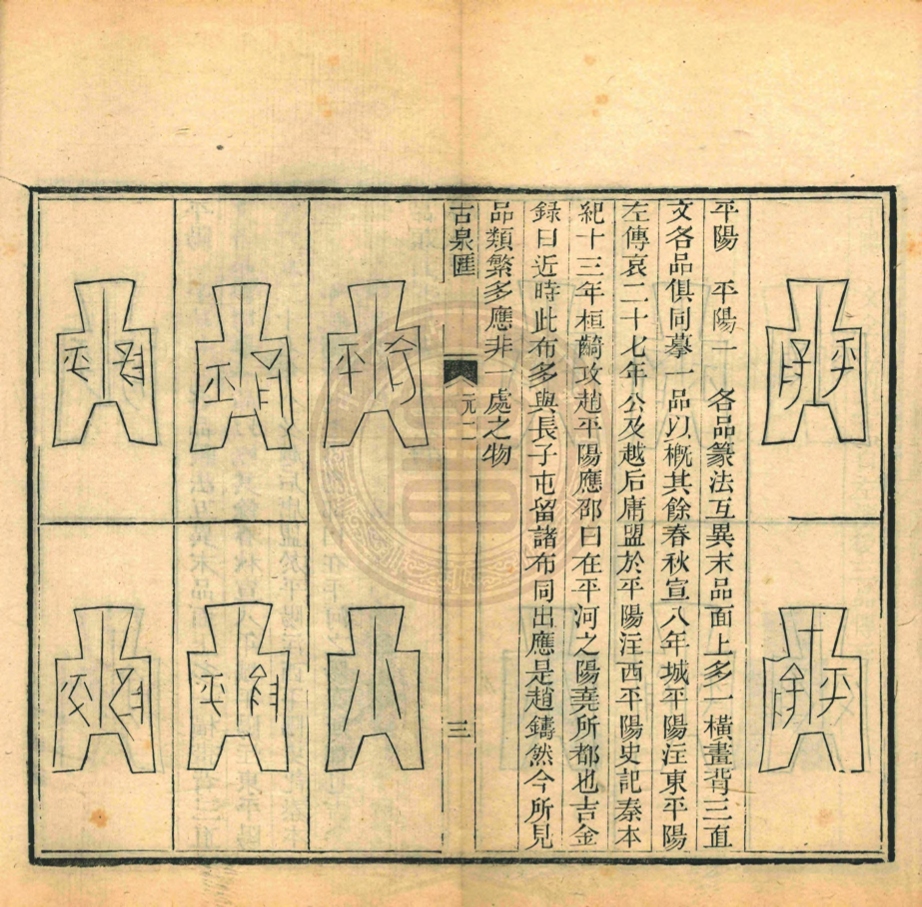 平陽　平陽一　各品篆法互異末品面上多一橫畫背三直
文各品俱同摹一品以槪其餘春秋宣八年城平陽注東平陽
左傳哀二十七年公及越后庸盟於平陽注西平陽史記秦本
紀十三年桓齮攻趙平陽應邵曰在平河之陽堯所都也吉金
録曰近時此布多與長子屯留諸布同出應是趙鑄然今所見
品類繁多應非一處之物
古泉匯　元二　三